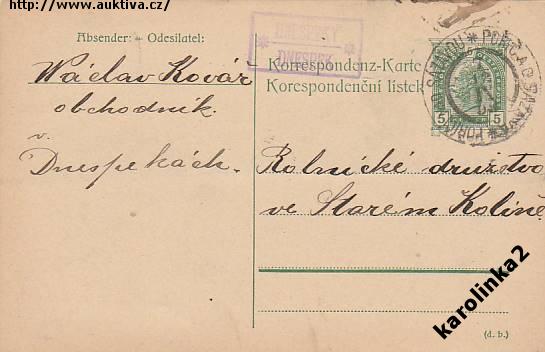 http://www.auktiva.cz/
Absender: – Odesílatel:
DNESPEK
Korrespondenz-Karte
Korespondenční lístek
5 5
Václav Kovář
obchodník
v.
Dnespekách.
Rolnické družstvo
ve Starém Kolíně
karolinka2
(d. b.)